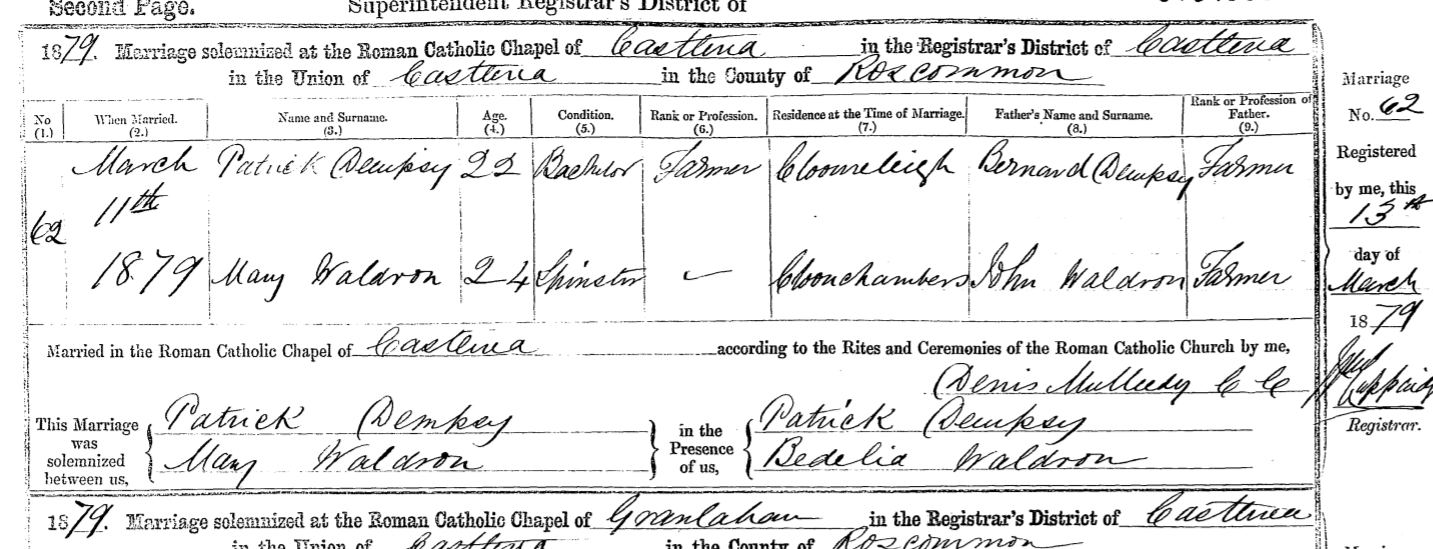 Second Page. Superintendent Registrar's District of
1879. Marriage solemnized at the Roman Catholic Chapel of Castlerea in the Registrar's District of Castlerea
in the Union of Castlerea in the County of Roscommon
No (1.) When Married. (2.) Name and Surname. (3.) Age. (4.) Condition. (5.) Rank or Profession. (6.) Residence at the Time of Marriage. (7.) Father's Name and Surname. (8.) Rank or Profession of Father. (9.)
62 March 11th 1879
Patrick Dempsy 22 Bachelor Farmer Clooneleigh Bernard Dempsy Farmer
Mary Waldron 24 Spinster Cloonchambers John Waldron Farmer
Married in the Roman Catholic Chapel of Castlerea according to the Rites and Ceremonies of the Roman Catholic Church by me,
Denis Mulleedy C C
This Marriage was solemnized between us,
Patrick Dempsy
Mary Waldron
in the Presence of us,
Patrick Dempsy
Bedelia Waldron
Marriage
No. 62
Registered
by me, this
13th
day of
March
1879
Registrar.
1879. Marriage solemnized at the Roman Catholic Chapel of Granlahan in the Registrar's District of Castlerea
in the Union of Castlerea in the County of Roscommon